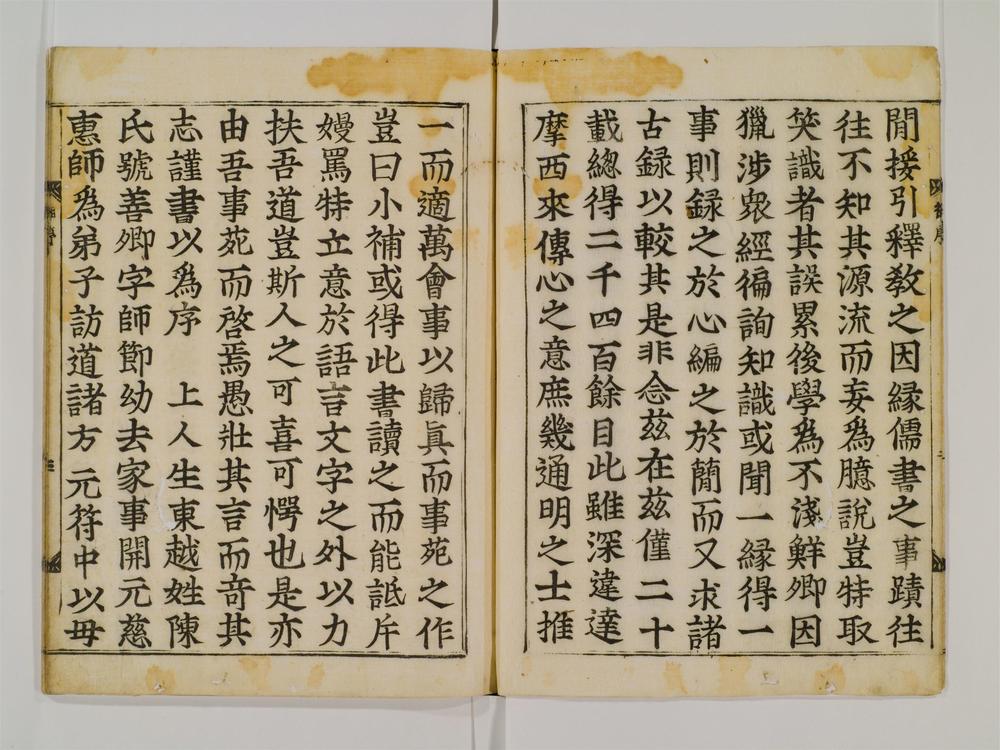 閒接引釋敎之因緣儒書之事蹟往
往不知其源流而妄爲臆說豈特取
笑識者其誤累後學爲不淺鮮卿因
獵涉衆經徧詢知識或聞一緣得一
事則録之於心編之於簡而又求諸
古録以較其是非念茲在茲僅二十
載總得二千四百餘目此雖深違達
摩西來傳心之意庶幾通明之士推
一而適萬會事以歸眞而事苑之作
豈曰小補或得此書讀之而能詆斥
嫚罵特立意於語言文字之外以力
扶吾道豈斯人之可喜可愕也是亦
由吾事苑而啓焉愚壯其言而竒其
志謹書以爲序 上人生東越姓陳
氏號善卿字師節幼去家事開元慈
惠師爲弟子訪道諸方元符中以母